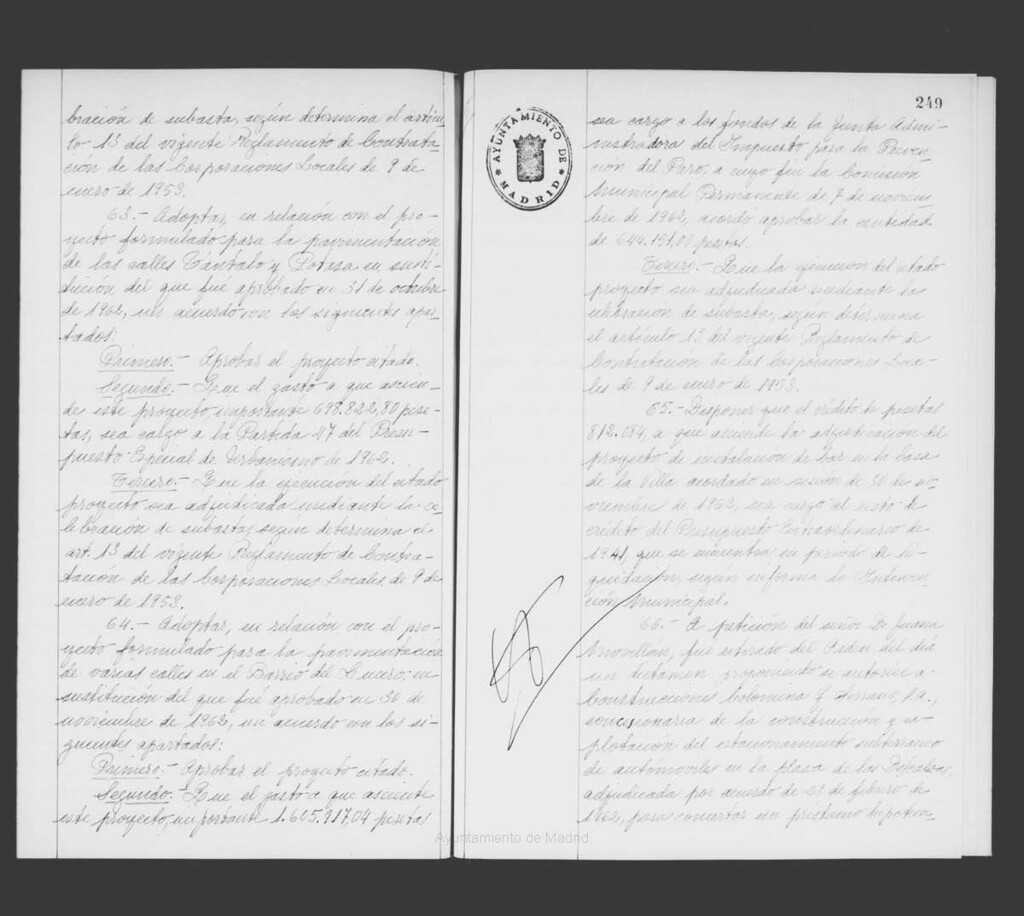 bración de subasta, según determina el artícu
lo 13 del vigente Reglamento de Contrata
ción de las Corporaciones Locales de 9 de
enero de 1953.
63.- Adoptar, en relación con el pro-
yecto formulado para la pavimentación
de las calles Tántalo y Potasa, en susti-
tución del que fué aprobado en 31 de octubre
de 1962, un acuerdo con los siguientes apar-
tados:
Primero.- Aprobar el proyecto citado.
Segundo.- Que el gasto a que ascien-
de este proyecto, importante 698.822,80 pese-
tas, sea cargo a la Partida 47 del Presu-
puesto Especial de Urbanismo de 1962.
Tercero.- Que la ejecución del citado
proyecto sea adjudicada mediante la ce-
lebración de subasta, según determina el
art. 13 del vigente Reglamento de Contra-
tación de las Corporaciones Locales de 9 de
enero de 1953.
64.- Adoptar, en relación con el pro-
yecto formulado para la pavimentación
de varias calles en el Barrio del Lucero, en
sustitución del que fué aprobado en 30 de
noviembre de 1962, un acuerdo con los si-
guientes apartados:
Primero.- Aprobar el proyecto citado.
Segundo.- Que el gasto a que asciende
este proyecto, importante 1.605.917,04 pesetas
249
AYUNTAMIENTO DE MADRID
sea cargo a los fondos de la Junta Admi-
nistradora del Impuesto para la Preven-
ción del Paro, a cuyo fin la Comisión
Municipal Permanente de 7 de noviem-
bre de 1962, acordó aprobar la cantidad
de 644.151,06 pesetas.
Tercero.- Que la ejecución del citado
proyecto sea adjudicada mediante la
celebración de subasta, según determina
el artículo 13 del vigente Reglamento de
Contratación de las Corporaciones Loca-
les de 9 de enero de 1953.
65.- Disponer que el crédito de pesetas
812.084, a que asciende la adjudicación del
proyecto de instalación de bar en la Casa
de la Villa acordado en sesión de 30 de no-
viembre de 1962, sea cargo al resto de
crédito del Presupuesto Extraordinario de
1941, que se encuentra en período de li-
quidación, según informa la Interven-
ción Municipal.
66.- A petición del señor De Juana
, fue retirado del Orden del día
un dictamen proponiendo se autorice a
Construcciones Colomina G. Serrano, S.A.,
concesionaria de la construcción y ex-
plotación del estacionamiento subterráneo
de automóviles en la plaza de las Descalzas,
adjudicada por acuerdo de 28 de febrero de
1962, para concertar un préstamo hipoteca-
Ayuntamiento de Madrid